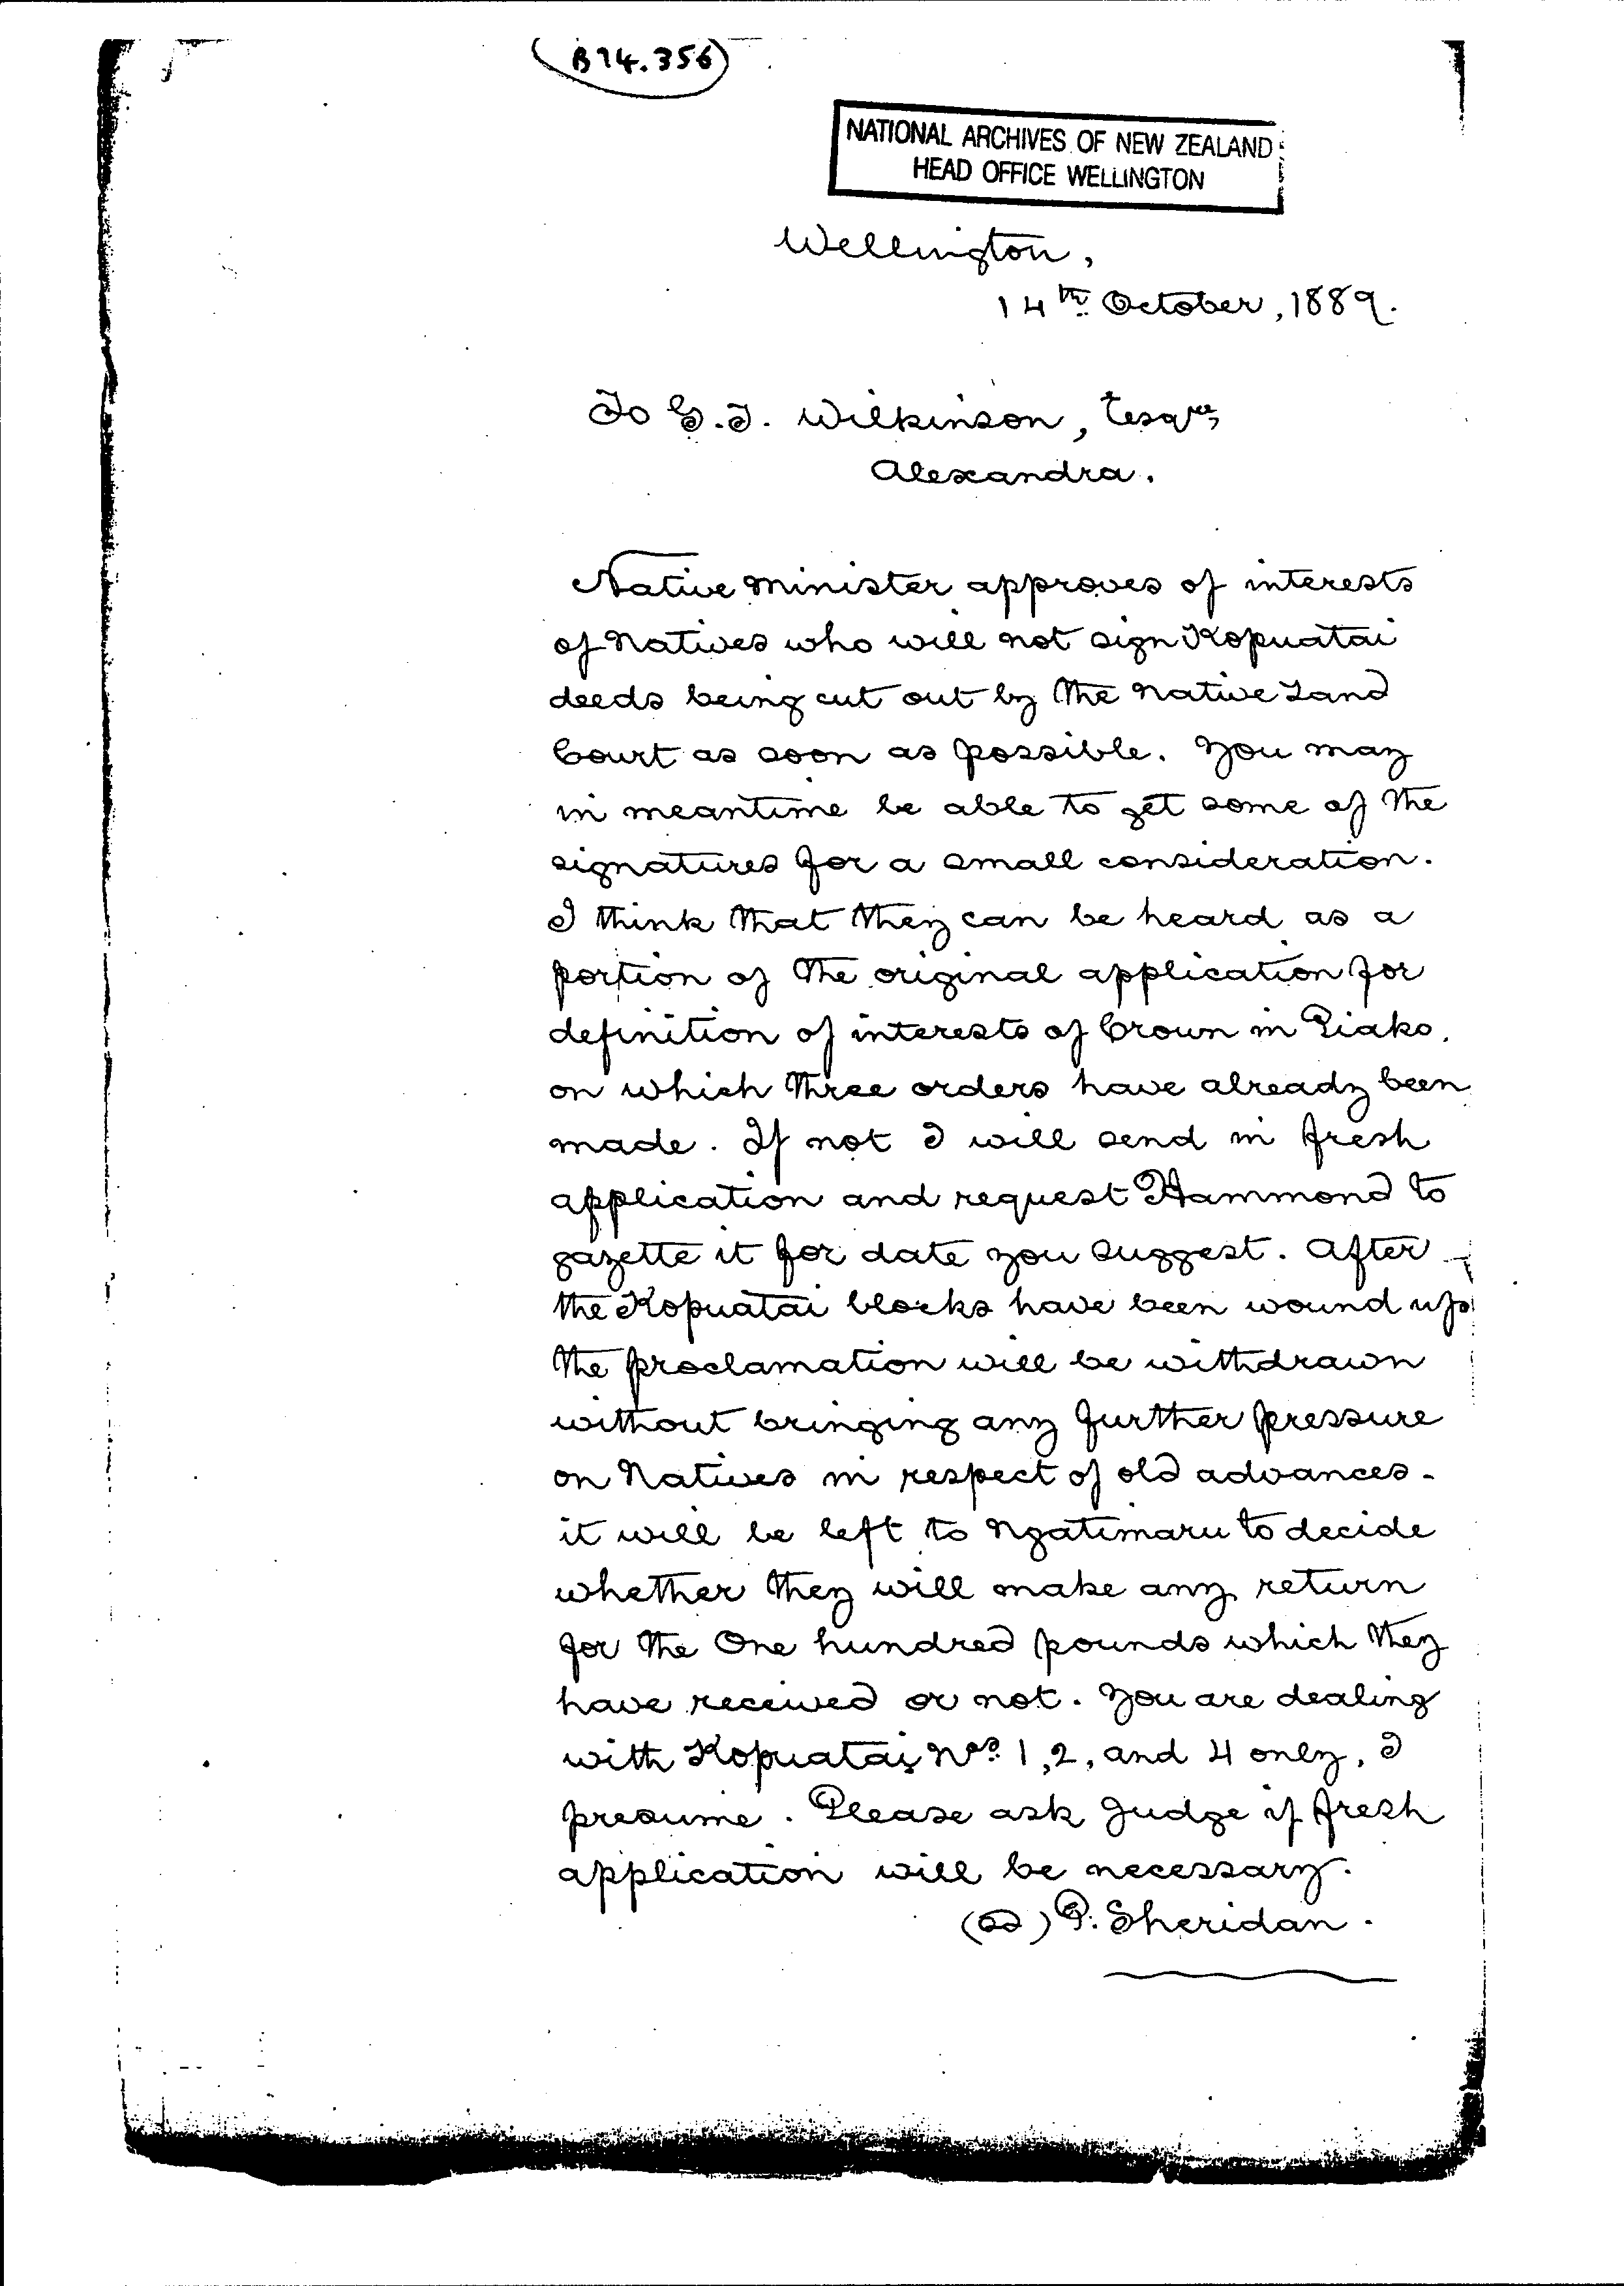 (B14.356)
NATIONAL ARCHIVES OF NEW ZEALAND
HEAD OFFICE WELLINGTON
Wellington,
14th October, 1889.
To G.T. Wilkinson, Esqre,
Alexandra.
Native Minister approves of interests
of Natives who will not sign Kopuatai
deeds being cut out by the Native Land
Court as soon as possible. You may
in meantime be able to get some of the
signatures for a small consideration.
I think that they can be heard as a
portion of the original application for
definition of interests of Crown in Piako,
on which three orders have already been
made. If not I will send in fresh
application and request Hammond to
gazette it for date you suggest. After
the Kopuatai blocks have been wound up
the proclamation will be withdrawn
without bringing any further pressure
on Natives in respect of old advances -
it will be left to Ngatimaru to decide
whether they will make any return
for the One hundred pounds which they
have received or not. You are dealing
with Kopuatai Nos. 1, 2, and 4 only, I
presume. Please ask Judge if fresh
application will be necessary.
(sd) P. Sheridan.